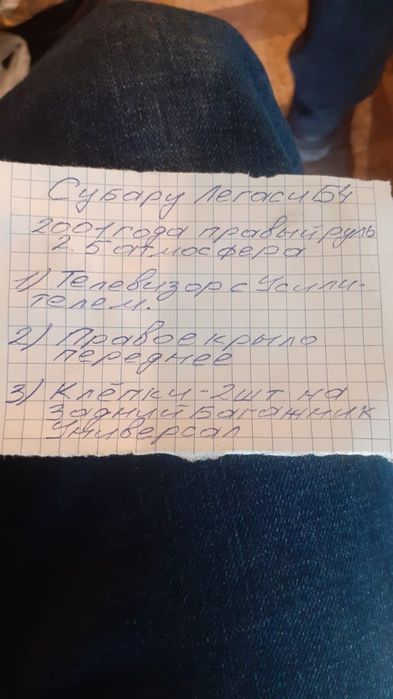 Субару Легаси Б4
2001 года правый руль
2.5 атмосфера
1) Телевизор с Усили-
телем.
2) Правое крыло
переднее
3) Клёпки-2шт на
Задний Багажник
Универсал